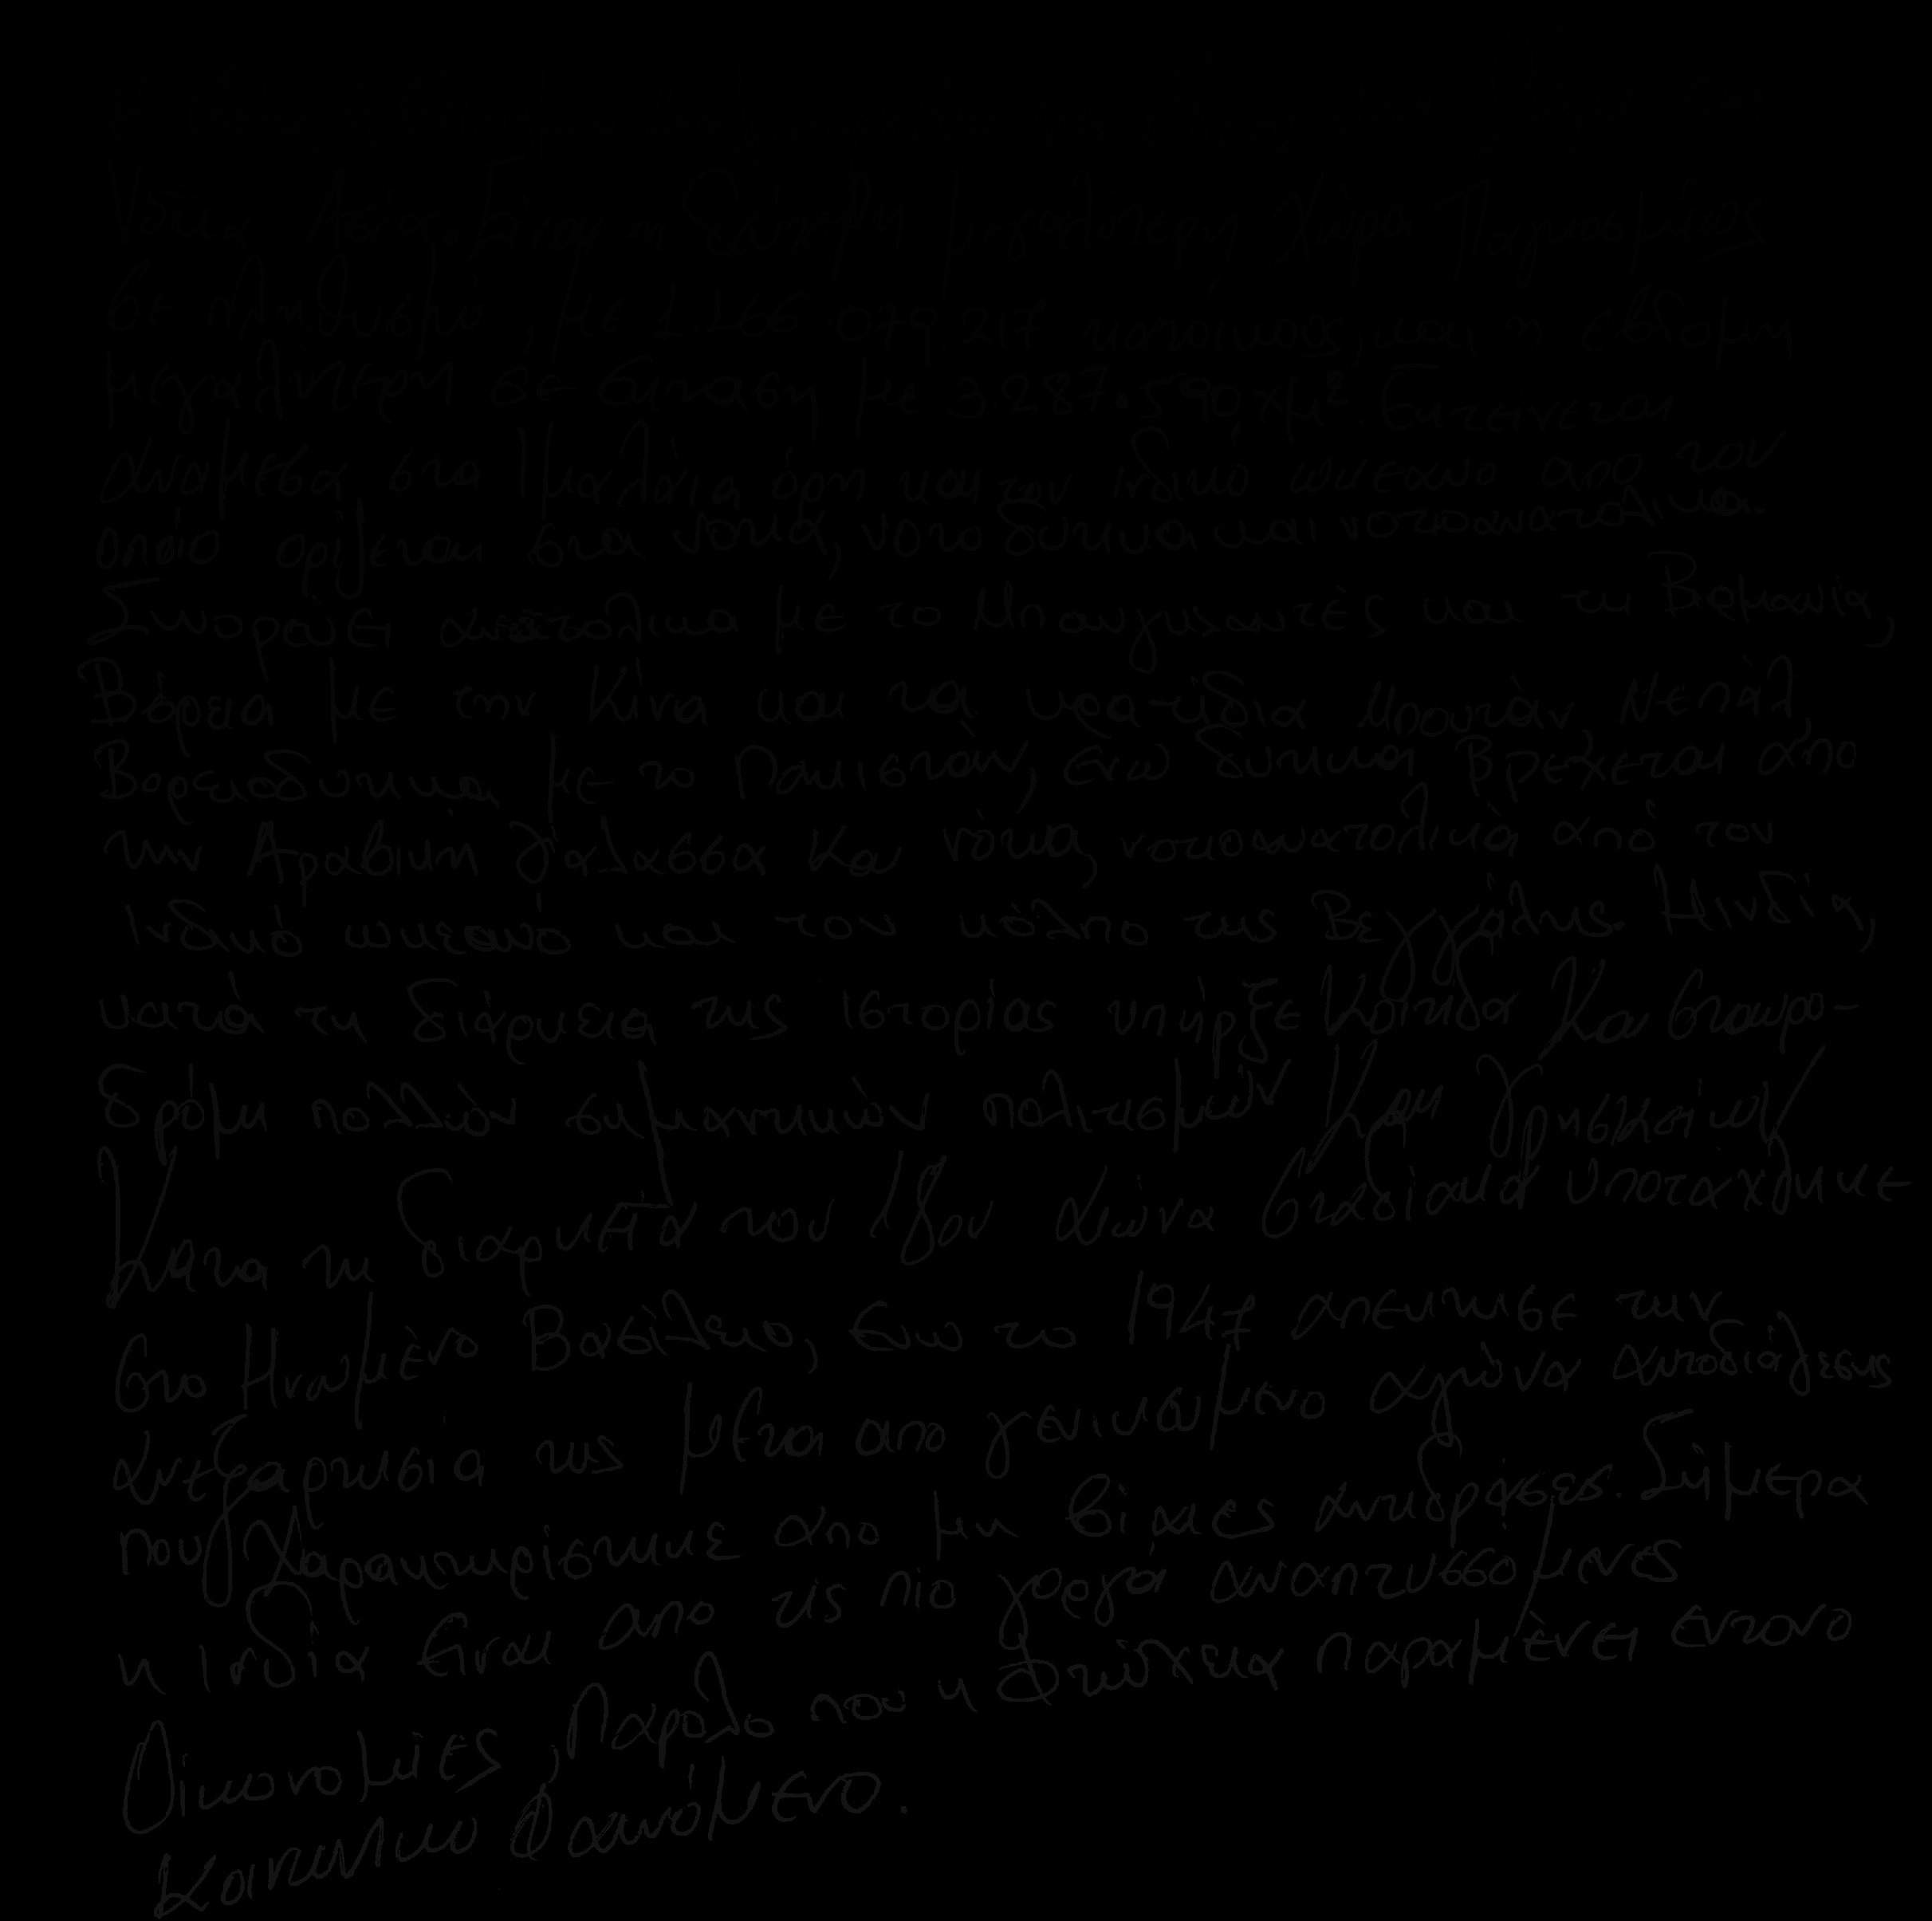 Νότια Ασία. Είναι η δεύτερη μεγαλύτερη χώρα Παγκοσμίως
σε πληθυσμό, με 1.166.079.217 κατοίκους, και η έβδομη
μεγαλύτερη σε έκταση με 3.287.590 χμ². Εκτείνεται
ανάμεσα στα Ιμαλάια όρη και τον ινδικό ωκεανο απο τον
οποίο ορίζεται στα νότια, νοτιοδυτικα και νοτιοανατολικα.
Συνορεύει ανατολικα με το Μπανγκλαντές και τη Βιρμανία,
Βόρεια με την Κίνα και τα κρατίδια Μπουτάν, Νεπάλ,
Βορειοδυτικα με το Πακιστάν, ενώ δυτικα Βρέχεται απο
την Αραβική θάλασσα Και νότια, νοτιοανατολικά από τον
Ινδικό ωκεανό και τον κόλπο της Βεγγάλης. Η Ινδία,
κατά τη διάρκεια της ιστορίας υπήρξε Κοιτίδα Και σταυρο-
δρόμι πολλών σημαντικών πολιτισμών Και θρησκειών
Κατα τη διαρκεια του 18ου αιώνα σταδίακα υποτάχθηκε
στο Ηνωμένο Βασίλειο, ενω το 1947 απεκτησε την
ανεξαρτησία της μετα απο γενικευμενο αγώνα αυτοδιάθεσης
που χαρακτηρίστηκε απο μη βίαιες αντιδράσεις. Σήμερα
η Ινδία είναι απο τις πιο γοργά αναπτυσσόμενες
Οικονομίες, Παρόλο που η Φτώχεια παραμένει εντονο
Κοινωνικο Φαινόμενο.